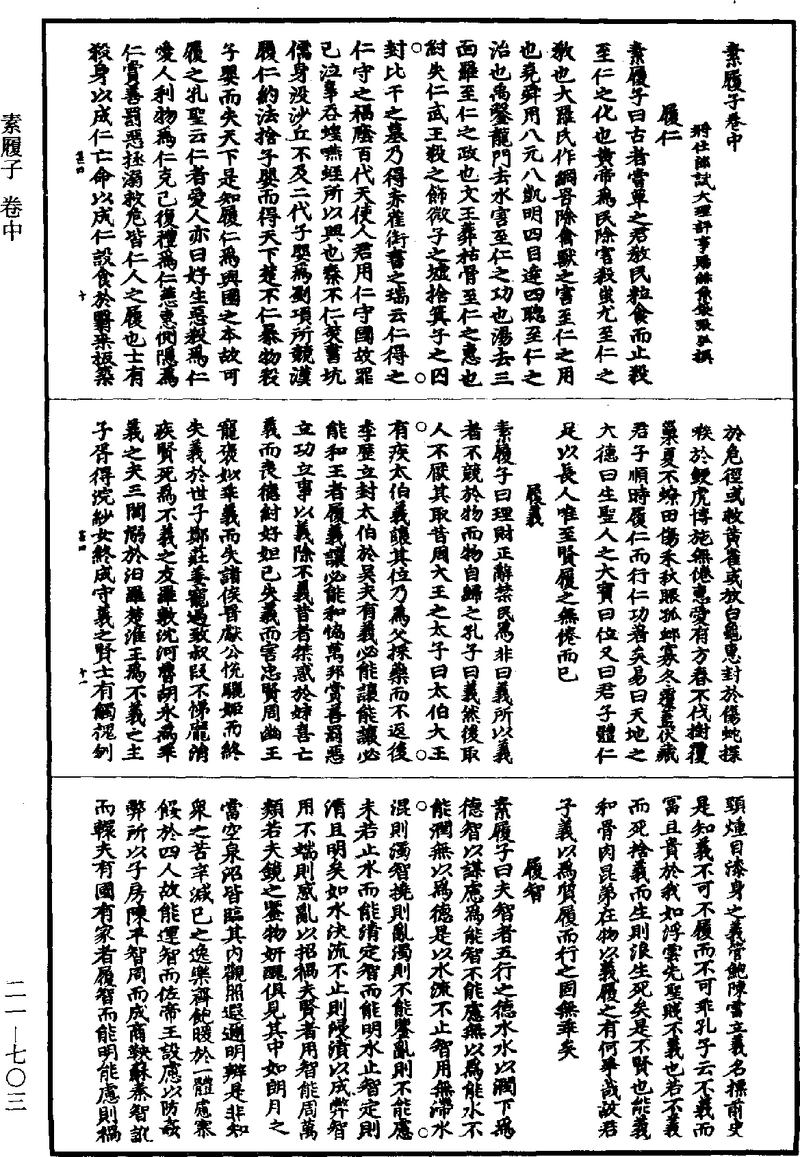 素履子卷中
將仕郎試大理評事賜緋魚袋張弧撰
履仁
素履子曰古者當單之君教民粒食而止殺
至仁之化也黃帝為民除害殺蚩尤至仁之
教也大羅氏作網罟除禽獸之害至仁之用
也堯舜用八元八凱明四目達四聰至仁之
治也禹鑿龍門去水害至仁之功也湯去三
面羅至仁之政也文王葬枯骨至仁之惠也
紂失仁武王殺之飾微子之墟捨箕子之囚
封比干之墓乃得赤雀銜書之瑞云仁得之
仁守之福廕百代天使人君用仁守國故罪
己泣辜吞蝗嚥蛭所以興也秦不仁焚書坑
儒身沒沙丘不及二代子嬰為劉項所競漢
履仁約法捨子嬰而得天下楚不仁暴物殺
子嬰而失天下是知履仁為興國之本故可
履之孔聖云仁者愛人亦曰好生惡殺為仁
愛人利物為仁克己復禮為仁慈惠惻隱為
仁賞善罰惡拯溺救危皆仁人之履也士有
殺身以成仁亡命以成仁設食於翳桑扳䋲
於危徑或救黃雀或放白龜惠封於傷蛇探
喉於鯁虎博施無倦惠愛有方春不伐樹覆
巢夏不燎田傷禾秋賑孤卹寡冬覆蓋伏藏
君子順時履仁而行仁功著矣易曰天地之
大德曰生聖人之大寶曰位又曰君子體仁
足以長人唯至賢履之無倦而已
履義
素履子曰理財正辭禁民為非曰義所以義
者不競於物而物自歸之孔子曰義然後取
人不厭其取昔周大王之太子曰太伯大王
有疾太伯義讓其位乃為父採藥而不返後
季歷立封太伯於吳夫有義必能讓能讓必
能和王者履義讓必能和恊萬邦賞善罰惡
立功立事以義除不義昔者桀惑於妹喜亡
義而喪德紂好妲己失義而害忠賢周幽王
寵褒姒乖義而失諸侯晉獻公悅驪姬而終
失義於世子鄭莊姜寵過致叔段不悌龐涓
疾賢死為不義之友羅敷沈河魯胡永為乖
義之夫三閭溺於汨羅楚淮王為不義之主
子胥得浣紗女終成守義之賢士有觸槐刎
頸煙目漆身之義管鮑陳雷立義名標前史
是知義不可不履而不可乖孔子云不義而
富且貴於我如浮雲先聖賤不義也若不義
而死捨義而生則浪生死矣是不賢也能義
和骨肉昆弟在物以義履之有何爭哉故君
子義以為質履而行之固無乖矣
履智
素履子曰夫智者五行之德水水以潤下為
德智以謀慮為能智不能慮無以為能水不
能潤無以為德是以水流不止智用無滯水
混則濁智撓則亂濁則不能鑒亂則不能慮
未若止水而能清定智而能明水止智定則
清且明矣如水決流不止則歸漬以成弊智
用不端則惑亂以招禍夫賢者用智能周萬
類若夫鏡之鑒物妍醜俱見其中如朗月之
當空泉沼皆臨其內觀照遐邇明辯是非知
眾之苦辛減己之逸樂齊飽暖於一體慮寒
餒於四人故能運智而佐帝王設慮以防姦
弊所以子房陳平智周而成商鞅蘇秦智訛
而轘夫有國有家者履智而能明能慮則禍
素履子 卷中
二一—七〇三